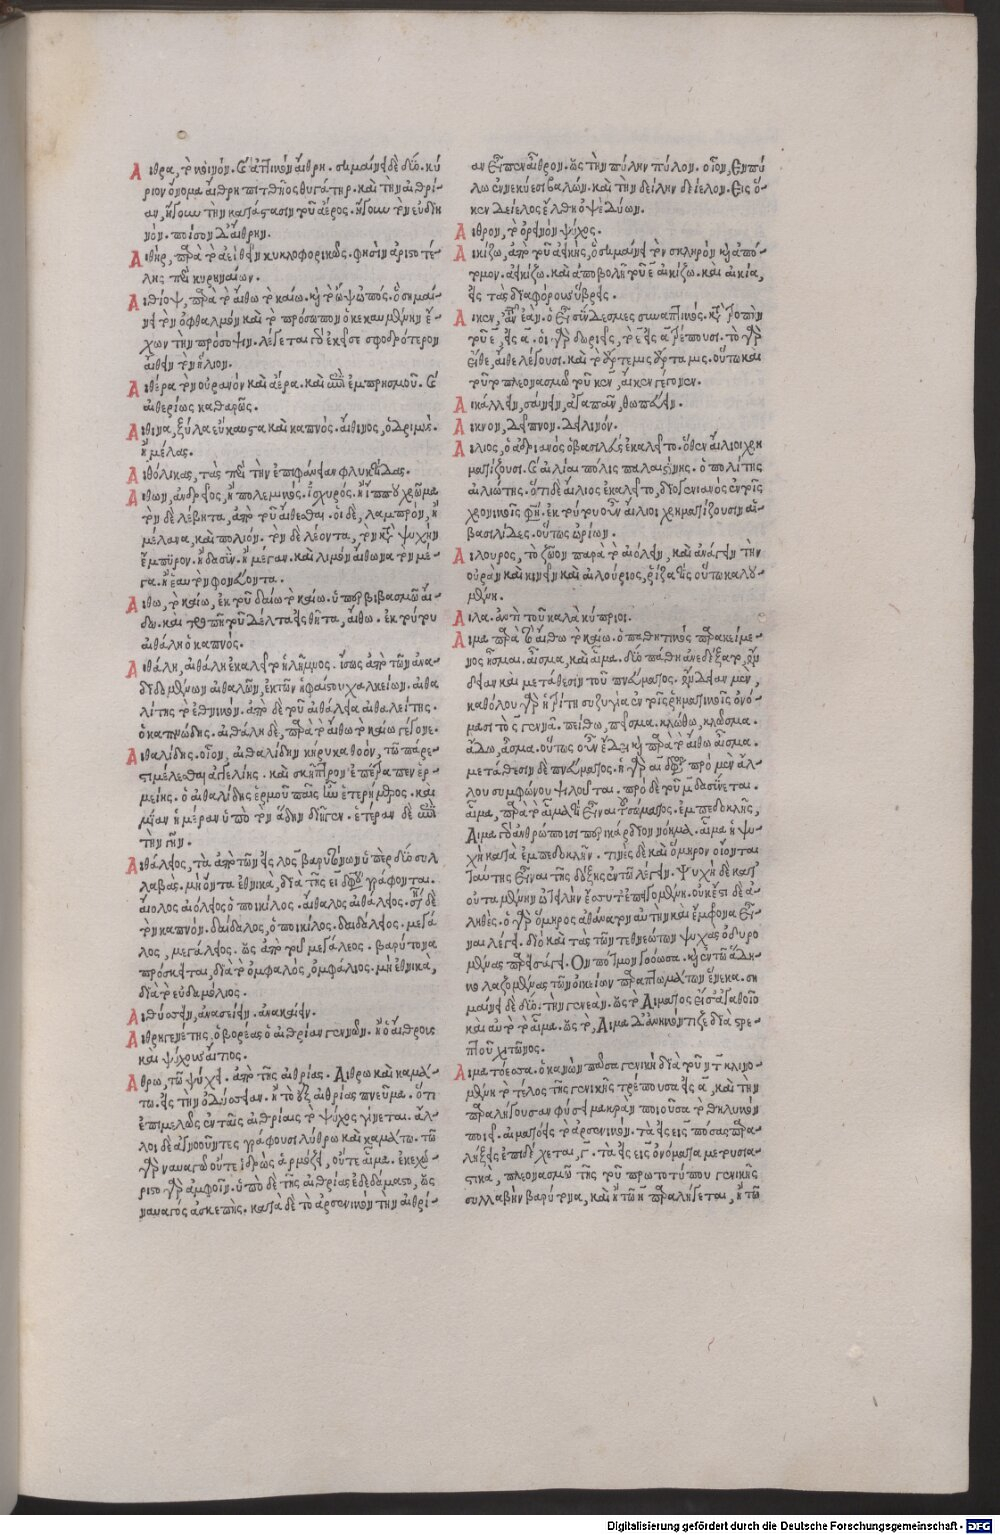 Αἴθρα, τὸ κοινόν. καὶ ἀττικὸν αἴθρη. σημαίνει δὲ δύο. κύ
ριον ὄνομα αἴθρη πιτθῆος θυγάτηρ. καὶ τὴν αἰθρί-
αν, ἤγουν τὴν κατάστασιν τοῦ ἀέρος. ἤγουν τὸν εὐδει
νόν. ποίησον δ' αἴθρην.
Αἰθὴρ, παρὰ τὸ ἀεὶ θεῖν κυκλοφορικῶς. φησὶν ἀριστοτέ-
λης περὶ κυρηναίων.
Αἰθίοψ, παρὰ τὸ αἴθω τὸ καίω. καὶ τὸ ὢψ ὠπός. ὃ σημαί-
νει τὸν ὀφθαλμὸν καὶ τὸ πρόσωπον ὁ κεκαυμένην ἔ-
χων τὴν πρόσοψιν. λέγεται γὸ ἐκεῖσε σφοδρότερον
αἴθειν τὸν ἥλιον.
Αἰθέρα τὸν οὐρανὸν καὶ ἀέρα. καὶ ἀπὸ ἐμπρησμοῦ. καὶ
αἰθερίως καθαρῶς.
Αἴθινα, ξύλα εὔκαυστα καὶ καπνός. αἴθινος, ὁ δριμύς.
ἢ μέλας.
Αἰθόλικας, τὰς περὶ τὴν ἐπιφάνειαν φλυκτίδας.
Αἴθων, ἀνδρεῖος, ἢ πολεμικός. ἰσχυρός. ἢ ἵππου χρῶμα
τὸν δὲ λέβητα, ἀπὸ τοῦ αἴθεσθαι. οἱ δὲ, λαμπρὸν, ἢ
μέλανα, καὶ πολιόν. τὸν δὲ λέοντα, τὸν κατὰ ψυχὴν
ἔμπυρον. ἢ δασύν. ἢ μέγαν. καὶ λιμὸν αἴθωνα τὸν μέ-
γα. ἢ ἑαυτὸν φονεύοντα.
Αἴθω, τὸ καίω, ἐκ τοῦ δαίω τὸ καίω. ὑπερβιβασμῷ αἴ-
δω. καὶ τροπῇ τοῦ δέλτα εἰς θῆτα, αἴθω. ἐκ τούτου
αἰθάλη ὁ καπνός.
Αἰθάλη, αἰθάλη ἐκαλεῖτο ἡ λῆμνος. ἴσως ἀπὸ τῶν ἀνα-
διδομένων αἰθαλῶν, ἐκ τῶν ἡφαίστου χαλκείων. αἰθα
λίτης τὸ ἐθνικόν. ἀπὸ δὲ τοῦ αἰθάλεια αἰθαλείτης.
ὁ καπνώδης. αἰθάλη δὲ, παρὰ τὸ αἴθω τὸ καίω γέγονε.
Αἰθαλίδης. οἷον, αἰθαλίδην κήρυκα θοόν, τῷ πάρε-
στι μέλεσθαι ἀγγελίης. καὶ σκῆπτρον ἐπέτραπεν ἑρ-
μείης. ὁ αἰθαλίδης ἑρμοῦ παῖς ἦν ἑτερήμερος. καὶ
μίαν ἡμέραν ὑπὸ τὸν ἅδην διῆγεν. ἑτέραν δὲ ἐπὶ
τὴν γῆν.
Αἰθάλειος, τὰ ἀπὸ τῶν εἰς λος βαρυτόνων ὑπὲρ δύο συλ
λαβὰς. μὴ ὄντα ἐθνικὰ, διὰ τῆς ει διφθόγγου γράφονται.
αἴολος αἰόλειος ὁ ποικίλος. αἴθαλος αἰθάλειος. σημαίνει δὲ
τὸν καπνόν. δαίδαλος, ὁ ποικίλος. δαιδάλειος. μεγά
λος, μεγάλειος. ὡς ἀπὸ τοῦ μεγάλεος. βαρύτονα
πρόσκειται, διὰ τὸ ὀμφαλός, ὀμφάλιος. μὴ ἐθνικὰ,
διὰ τὸ εὐδαμόλιος.
Αἰθύσσειν, ἀνασείειν. ἀνακαίειν.
Αἰθρηγενέτης, ὁ βορέας ὁ αἰθρίαν γεννῶν. ἢ ὁ αἴθρους
καὶ ψύχους αἴτιος.
Αἴθρῳ, τῷ ψύχει. ἀπὸ τῆς αἰθρίας. Αἴθρῳ καὶ καμά-
τω. εἰς τὴν ὀδύσσειαν. ἢ τὸ ἐξ αἰθρίας πνεῦμα. ὅτι
ἐπιμελῶς ἐν ταῖς αἰθρίαις τὸ ψύχος γίνεται. ἄλ-
λοι δὲ ἀγνοοῦντες γράφουσι λύθρω καὶ καμάτω. τῷ
γὰρ ναυαγῷ οὔτε ἱδρὼς ἁρμόζει, οὔτε αἷμα. ἐκεχώ-
ριστο γὰρ ἀμφοῖν. ὑπὸ δὲ τῆς αἰθρίας ἐδεδάμαστο, ὡς
ναυαγός ἀσκεπής. κατὰ δὲ τὸ ἀρσενικὸν τὴν αἰθρί-
αν εἶπεν αἶθρον. ὡς τὴν πύλην πύλον. οἷον, Ἐν πύ
λω ἐν νεκύεσι βαλών. καὶ τὴν δείλην δείελον. Εἰς ὅ-
κεν Δείελος ἔλθη ὀψὲ δύων.
Αἶθρον, τὸ ὀρεινὸν ψύχος.
Αἰκίζω, ἀπὸ τοῦ ἀεικὴς, ὃ σημαίνει τὸν σκληρὸν καὶ ἀπό-
τομον. ἀεικίζω. καὶ ἀποβολῇ τοῦ ε αἰκίζω. καὶ αἰκία,
εἰς τὰς διαφόρους ὕβρεις.
Αἴκεν, ἀντὶ ἐὰν. ὁ εἰ σύνδεσμος συναπτικός. κατὰ τροπὴν
τοῦ ε, εἰς α. οἱ γὰρ δωριεῖς, τὸ ε εἰς α τρέπουσι. τὸ γὰρ
εἴθε, αἴθε λέγουσι. καὶ τὸ ἄρτεμις ἄρταμις. οὕτω καὶ
τοῦτο πλεονασμῷ τοῦ κεν, αἴκεν γέγονεν.
Αἰκάλλειν, σαίνειν, ἀγαπᾶν, θωπεύειν.
Αἶκνον, δεῖπνον. δειλινόν.
Αἴλιος, ὁ ἀδριανός ὁ βασιλεὺς ἐκαλεῖτο. ὅθεν αἴλιοι χρη
ματίζουσι. καὶ αἰλία πόλις παλαιστίνης. ὁ πολίτης
αἰλιώτης. ὅτι δὲ αἴλιος ἐκαλεῖτο, διογενιανὸς ἐν τοῖς
χρονικοῖς φησὶν. ἐκ τούτου οὖν αἴλιοι χρηματίζουσιν αἱ-
βασιλίδες. οὕτως ὠρίων.
Αἴλουρος, τὸ ζῶον παρὰ τὸ αἰόλλειν, καὶ ἀνάγειν τὴν
οὐρὰν καὶ κινεῖν καὶ αἰλούριος, ῥίζα τὶς οὕτω καλου-
μένη.
Αἶλα. ἀντὶ τοῦ καλὰ κύπριοι.
Αἷμα παρὰ τὸ αἴθω τὸ καίω. ὁ παθητικὸς παρακείμε-
νος ᾖσμαι. αἶσμα, καὶ αἷμα. δύο πάθη ἀνεδέξατο, ἔν
δειαν καὶ μετάθεσιν τοῦ πνεύματος. ἔνδειαν μὲν,
καθόλου γὰρ ἡ τρίτη συζυγία ἐν τοῖς ῥηματικοῖς ὀνό-
μασι τὸ σ γεννᾷ. πείθω, πεῖσμα. κλώθω, κλῶσμα.
ᾄδω, ᾆσμα. οὕτως οὖν ἔδει καὶ παρὰ τὸ αἴθω αἶσμα.
μετάθεσιν δὲ πνεύματος. ἡ γὰρ αι δίφθογγος πρὸ μὲν ἄλ-
λου συμφώνου ψιλοῦται. πρὸ δὲ τοῦ μ δασύνεται.
αἷμα, παρὰ τὸ αἷμά τι εἶναι τοῦ σώματος. ἐμπεδοκλῆς,
Αἷμα γὸ ἀνθρώποισι περικάρδιον νόημα. αἷμα ἡ ψυ-
χὴ κατὰ ἐμπεδοκλῆν. τινὲς δὲ καὶ ὅμηρον οἴονται
ταύτης εἶναι τῆς δόξης ἐν τῷ λέγειν. ψυχὴ δὲ κατ'
οὐταμένην ὠτειλὴν ἔσσυτ' ἐπειγομένη. οὐκ ἔστι δὲ ἀ-
ληθὲς. ὁ γὰρ ὅμηρος ἀθάνατον αὐτὴν καὶ ἔμφρονα εἶ-
ναι λέγει. διὸ καὶ τὰς τῶν τεθνεώτων ψυχὰς ὀδυρο
μένας παρεισάγει. Ὃν πότμον γοόωσα. καὶ ἐν τῷ ἅδη-
νυ λαζομένας τῶν οἰκείων πραττομένων ἕνεκα. ση
μαίνει δὲ δύο. τὴν γενεάν. ὡς τὸ Αἵματος εἷς ἀγαθοῖο
καὶ αὐτὸ τὸ αἷμα. ὡς τὸ, Αἷμα δ' ἀνηκόντιζε διὰ στρε-
πτοῦ χιτῶνος.
Αἱματόεσσα. ὁ κανὼν πᾶσα γενικὴ διὰ τοῦ ντ κλινο-
μένη τὸ τέλος τῆς γενικῆς τρέπουσα εἰς α, καὶ τὴν
παραλήγουσαν φύσει μακρὰν ποιοῦσα τὸ θηλυκὸν
ποιεῖ. αἱματόεις τὸ ἀρσενικόν. τὰ εἰς εις πόσας παρα-
λήξεις ἐπιδέχεται, γ. τὰ εἰς εις ὀνόματα μετουσια-
στικὰ, πλεονασμῷ τῆς τοῦ πρωτοτύπου γενικῆς
συλλαβὴν βαρύτονα, καὶ ἢ τῷ η παραλήγεται, ἢ τῷ
Digitalisierung gefördert durch die Deutsche Forschungsgemeinschaft - DFG